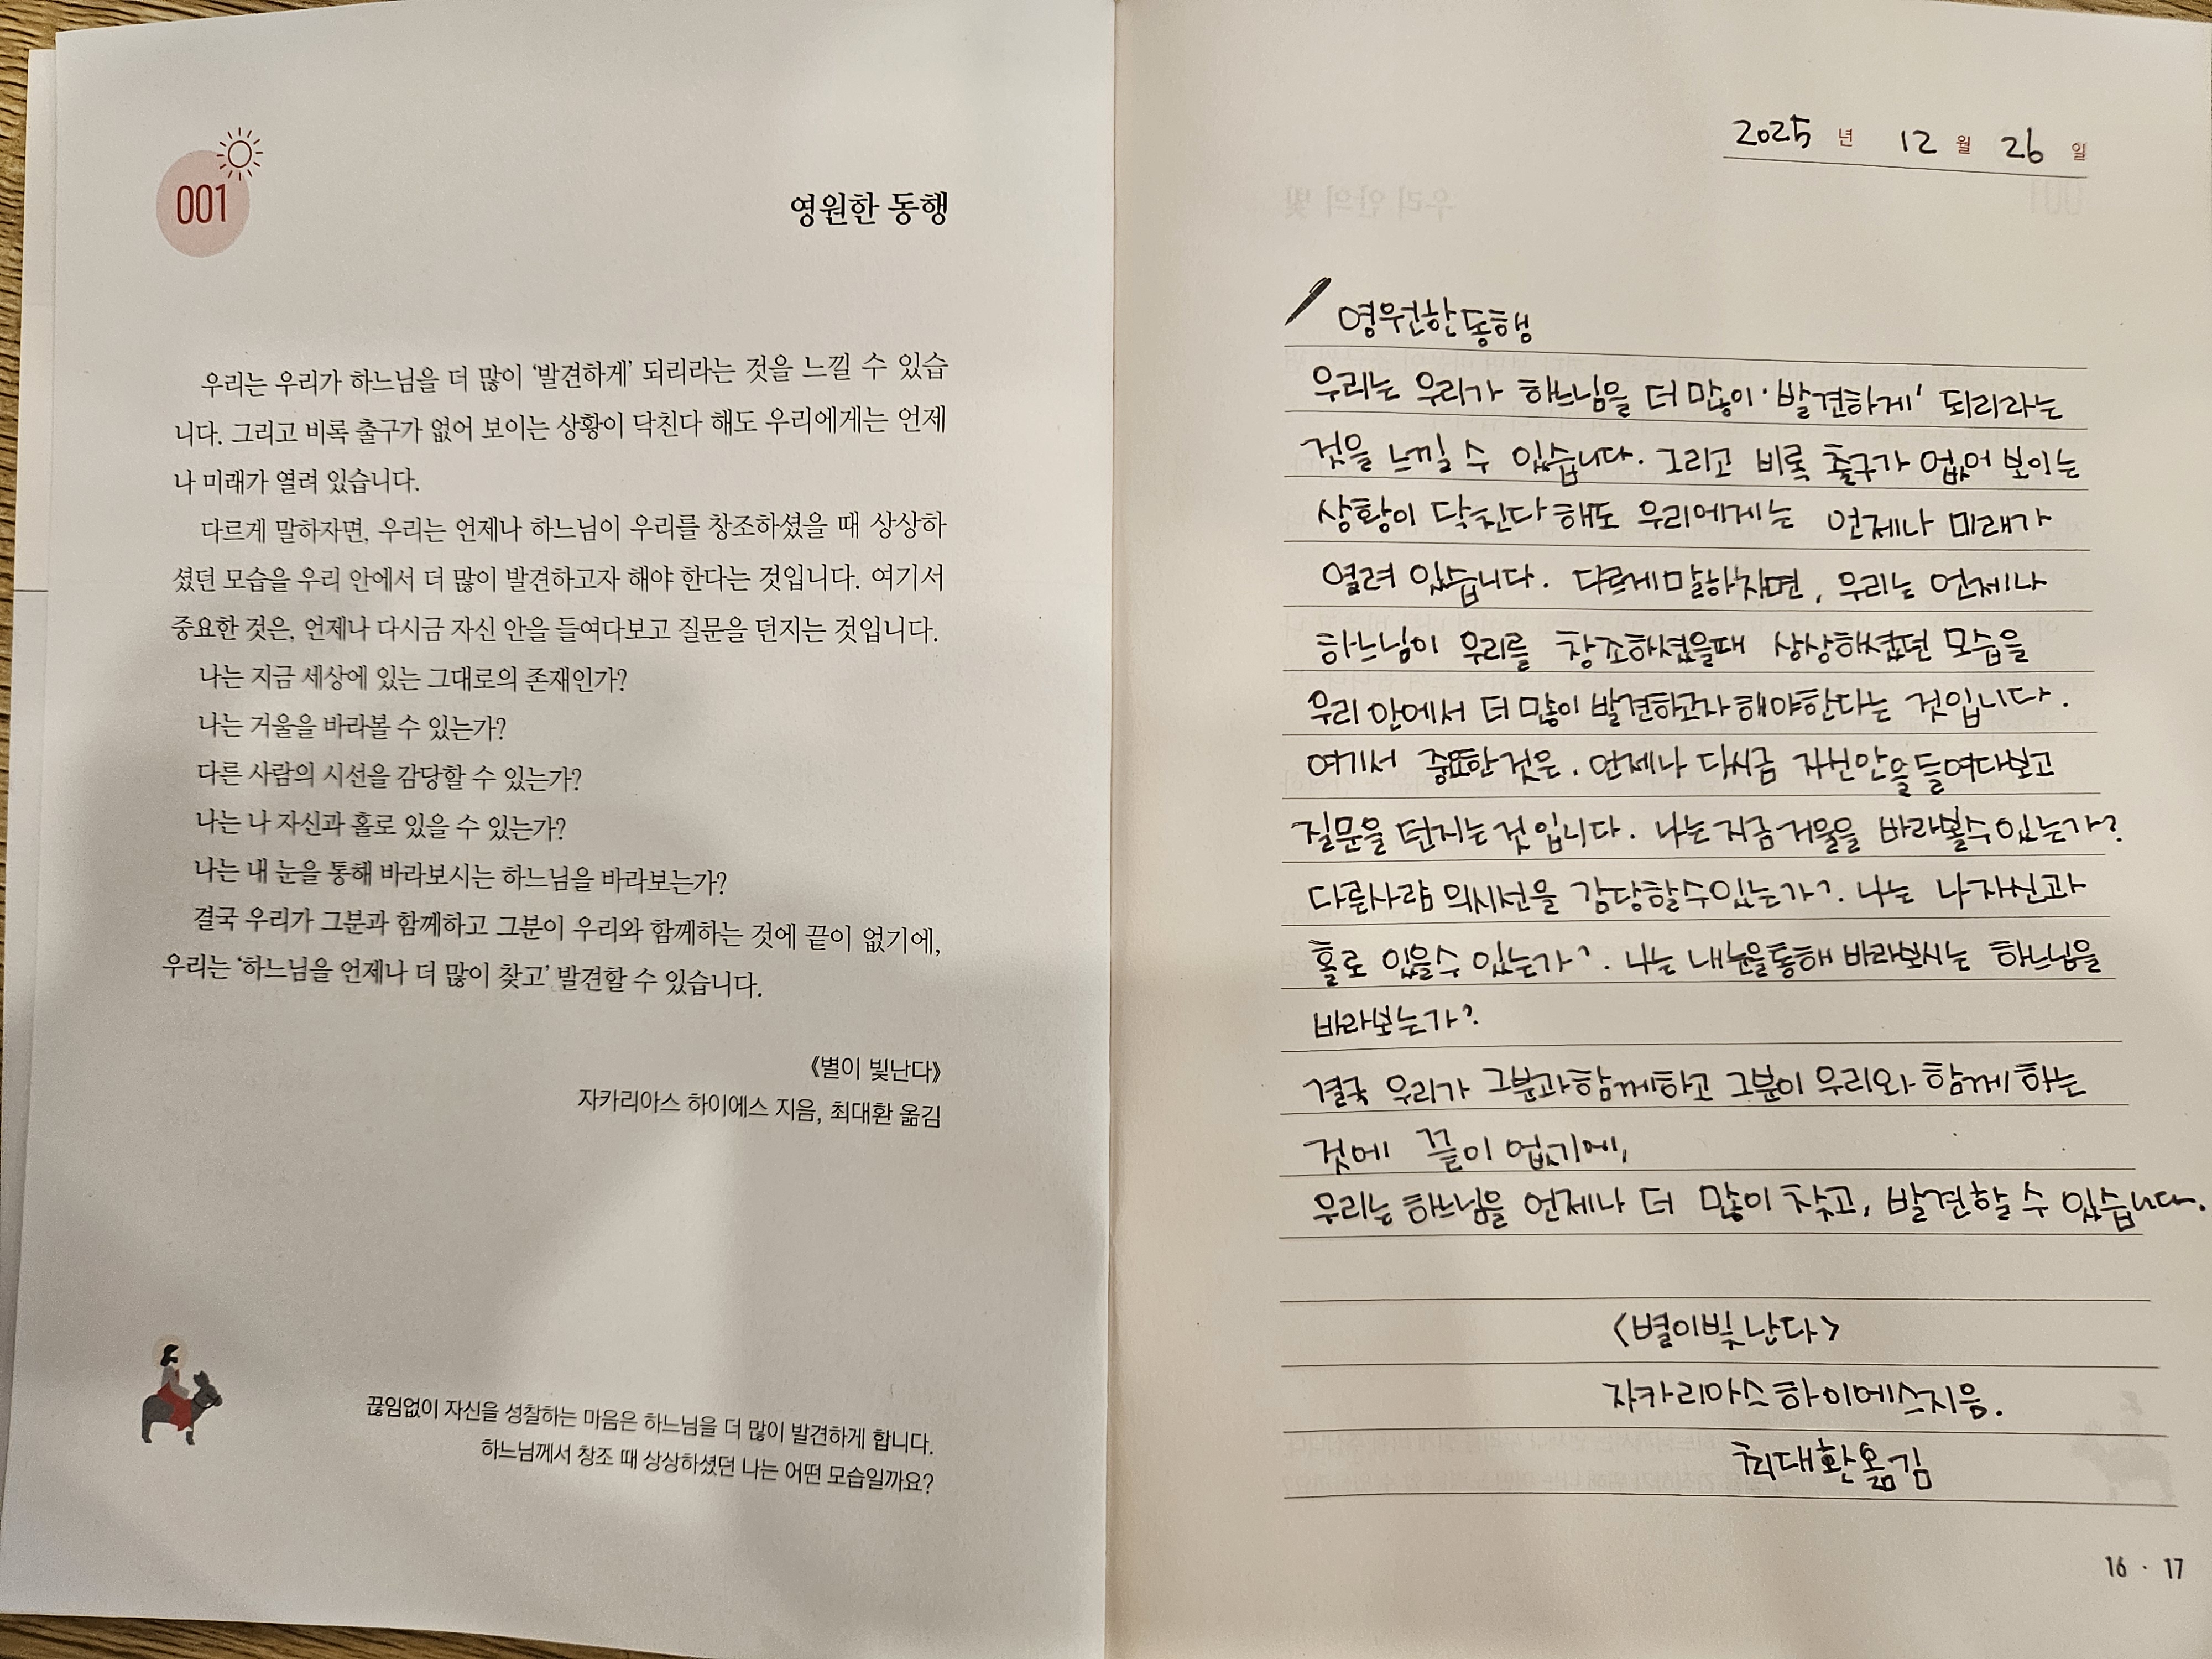 001
영원한 동행
우리는 우리가 하느님을 더 많이 ‘발견하게’ 되리라는 것을 느낄 수 있습
니다. 그리고 비록 출구가 없어 보이는 상황이 닥친다 해도 우리에게는 언제
나 미래가 열려 있습니다.
다르게 말하자면, 우리는 언제나 하느님이 우리를 창조하셨을 때 상상하
셨던 모습을 우리 안에서 더 많이 발견하고자 해야 한다는 것입니다. 여기서
중요한 것은, 언제나 다시금 자신 안을 들여다보고 질문을 던지는 것입니다.
나는 지금 세상에 있는 그대로의 존재인가?
나는 거울을 바라볼 수 있는가?
다른 사람의 시선을 감당할 수 있는가?
나는 나 자신과 홀로 있을 수 있는가?
나는 내 눈을 통해 바라보시는 하느님을 바라보는가?
결국 우리가 그분과 함께하고 그분이 우리와 함께하는 것에 끝이 없기에,
우리는 ‘하느님을 언제나 더 많이 찾고’ 발견할 수 있습니다.
《별이 빛난다》
자카리아스 하이에스 지음, 최대환 옮김
끊임없이 자신을 성찰하는 마음은 하느님을 더 많이 발견하게 합니다.
하느님께서 창조 때 상상하셨던 나는 어떤 모습일까요?
2025 년 12 월 26 일
영원한 동행
우리는 우리가 하느님을 더 많이 '발견하게' 되리라는
것을 느낄 수 있습니다. 그리고 비록 출구가 없어 보이는
상황이 닥친다 해도 우리에게는 언제나 미래가
열려 있습니다. 다르게말하자면, 우리는 언제나
하느님이 우리를 창조하셨을때 상상하셨던 모습을
우리 안에서 더 많이 발견하고자 해야한다는 것입니다.
여기서 중요한 것은. 언제나 다시금 자신안을 들여다보고
질문을 던지는 것입니다. 나는 지금 거울을 바라볼수 있는가?
다른사람 의시선을 감당할수있는가?. 나는 나 자신과
홀로 있을수 있는가?. 나는 내눈을통해 바라보시는 하느님을
바라보는가?
결국 우리가 그분과 함께하고 그분이 우리와 함께 하는
것에 끝이 없기에,
우리는 하느님을 언제나 더 많이 찾고, 발견할 수 있습니다.
<별이빛난다>
자카리아스 하이에스지음.
최대환옮김
16 · 17